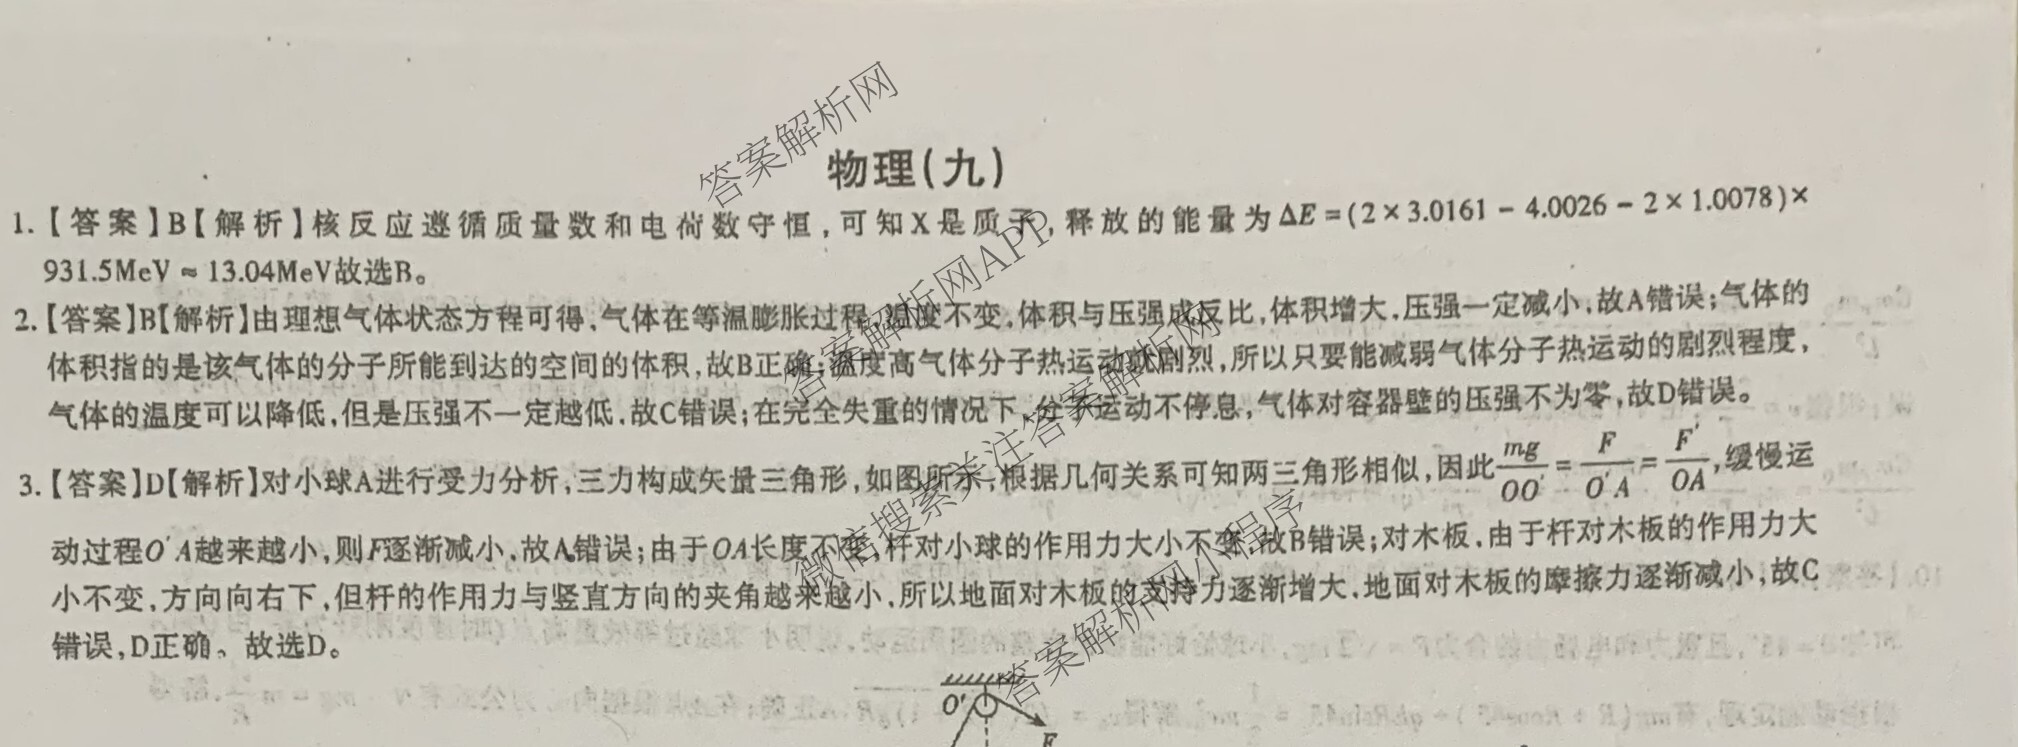 物理(九)
1.【答案】B【解析】核反应遵循质量数和电荷数守恒,可知X是质子,释放的能量为ΔE=(2×3.0161-4.0026-2×1.0078)×
931.5MeV≈13.04MeV故选B。
2.【答案】B【解析】由理想气体状态方程可得,气体在等温膨胀过程,温度不变,体积与压强成反比,体积增大,压强一定减小,故A错误;气体的
体积指的是该气体的分子所能到达的空间的体积,故B正确;温度高气体分子热运动就剧烈,所以只要能减弱气体分子热运动的剧烈程度,
气体的温度可以降低,但是压强不一定越低,故C错误;在完全失重的情况下,分子运动不停息,气体对容器壁的压强不为零,故D错误。
3.【答案】D【解析】对小球A进行受力分析,三力构成矢量三角形,如图所示,根据几何关系可知两三角形相似,因此mg/OO′=F/O′A=F′/OA,缓慢运
动过程O′A越来越小,则F逐渐减小,故A错误;由于OA长度不变,杆对小球的作用力大小不变,故B错误;对木板,由于杆对木板的作用力大
小不变,方向向右下,但杆的作用力与竖直方向的夹角越来越小,所以地面对木板的支持力逐渐增大,地面对木板的摩擦力逐渐减小,故C
错误,D正确。故选D。
O′
F
答案解析网
答案解析网APP
微信搜索关注答案解析网
答案解析网小程序